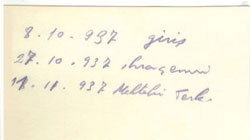 8.10.937 giriş
27.10.937
17.11.937 Mektebi Terk.